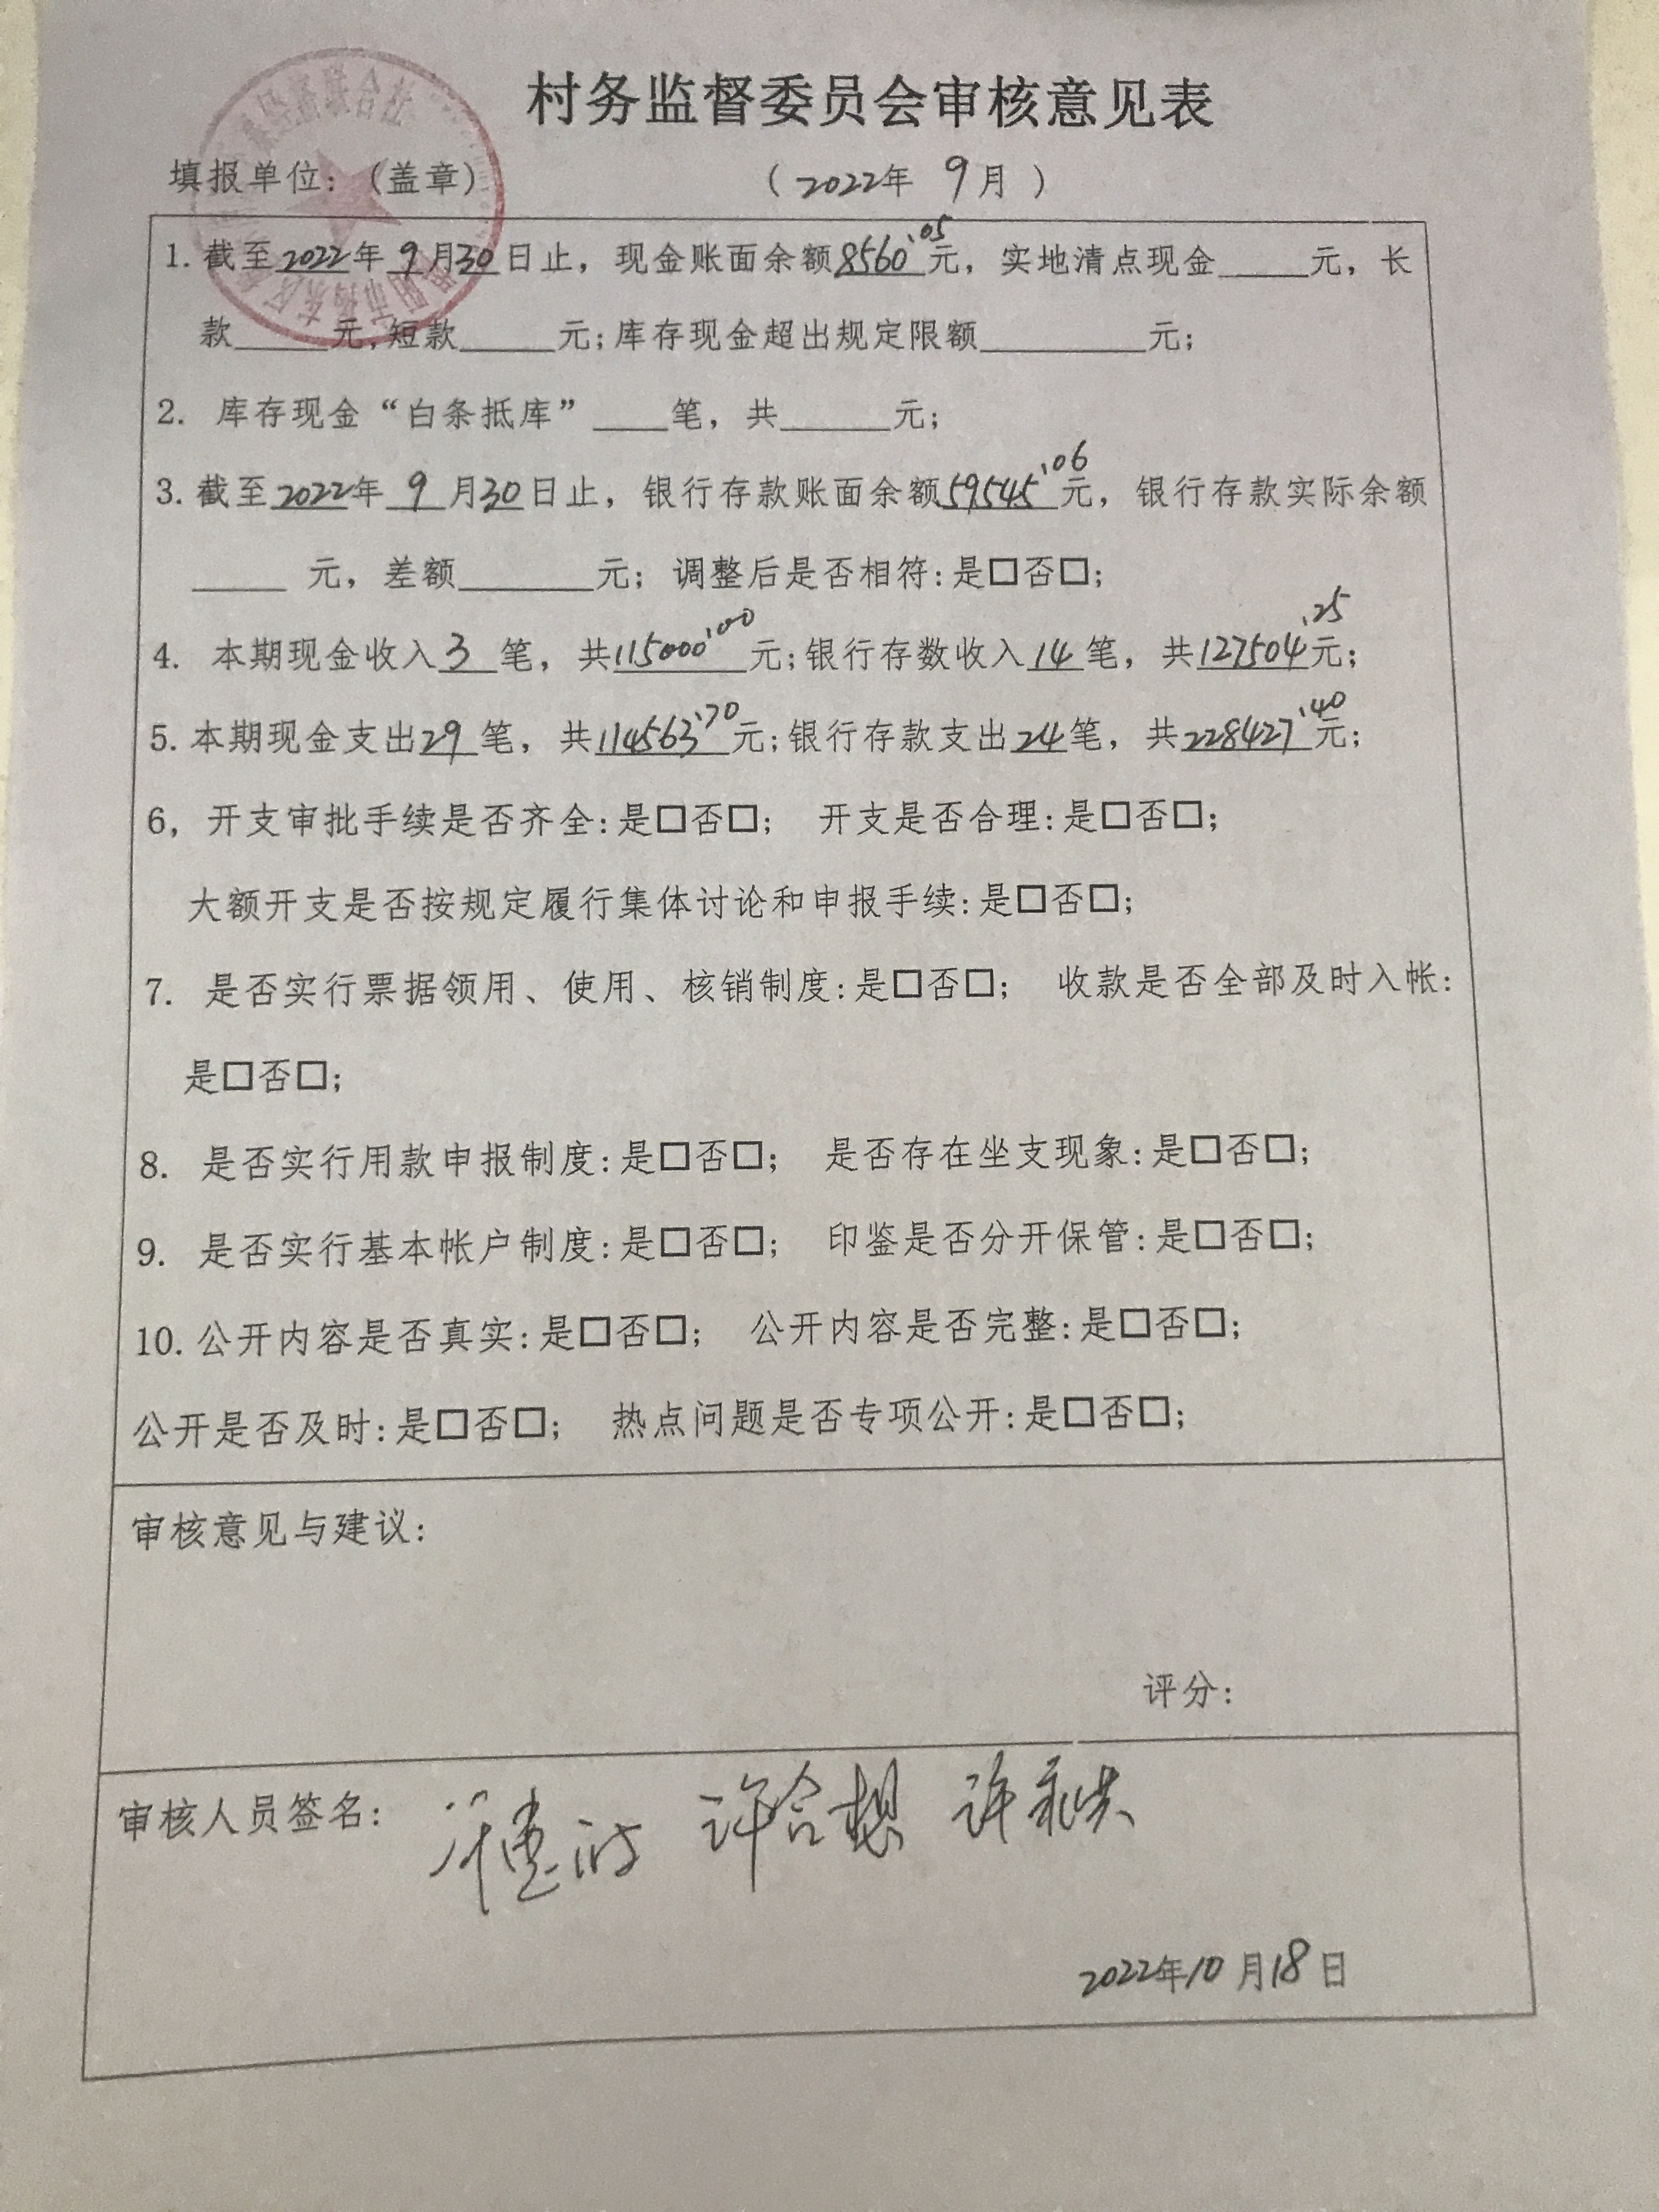 村务监督委员会审核意见表
填报单位：（盖章）
（2022年 9月）
1. 截至2022年 9月30日止，现金账面余额8560.05元，实地清点现金_____元，长
款_____元，短款_____元；库存现金超出规定限额_________元；
2. 库存现金“白条抵库”____笔，共______元；
3. 截至2022年 9月30日止，银行存款账面余额59545.06元，银行存款实际余额
_____ 元，差额_______元； 调整后是否相符：是□否□；
4. 本期现金收入3笔，共115000.00元；银行存数收入14笔，共127504.25元；
5. 本期现金支出29笔，共114563.70元；银行存款支出24笔，共228427.40元；
6, 开支审批手续是否齐全：是□否□； 开支是否合理：是□否□；
大额开支是否按规定履行集体讨论和申报手续：是□否□；
7. 是否实行票据领用、使用、核销制度：是□否□； 收款是否全部及时入帐：
是□否□；
8. 是否实行用款申报制度：是□否□； 是否存在坐支现象：是□否□；
9. 是否实行基本帐户制度：是□否□； 印鉴是否分开保管：是□否□；
10. 公开内容是否真实：是□否□； 公开内容是否完整：是□否□；
公开是否及时：是□否□； 热点问题是否专项公开：是□否□；
审核意见与建议：
评分：
审核人员签名： 许合想 许
2022年10月18日